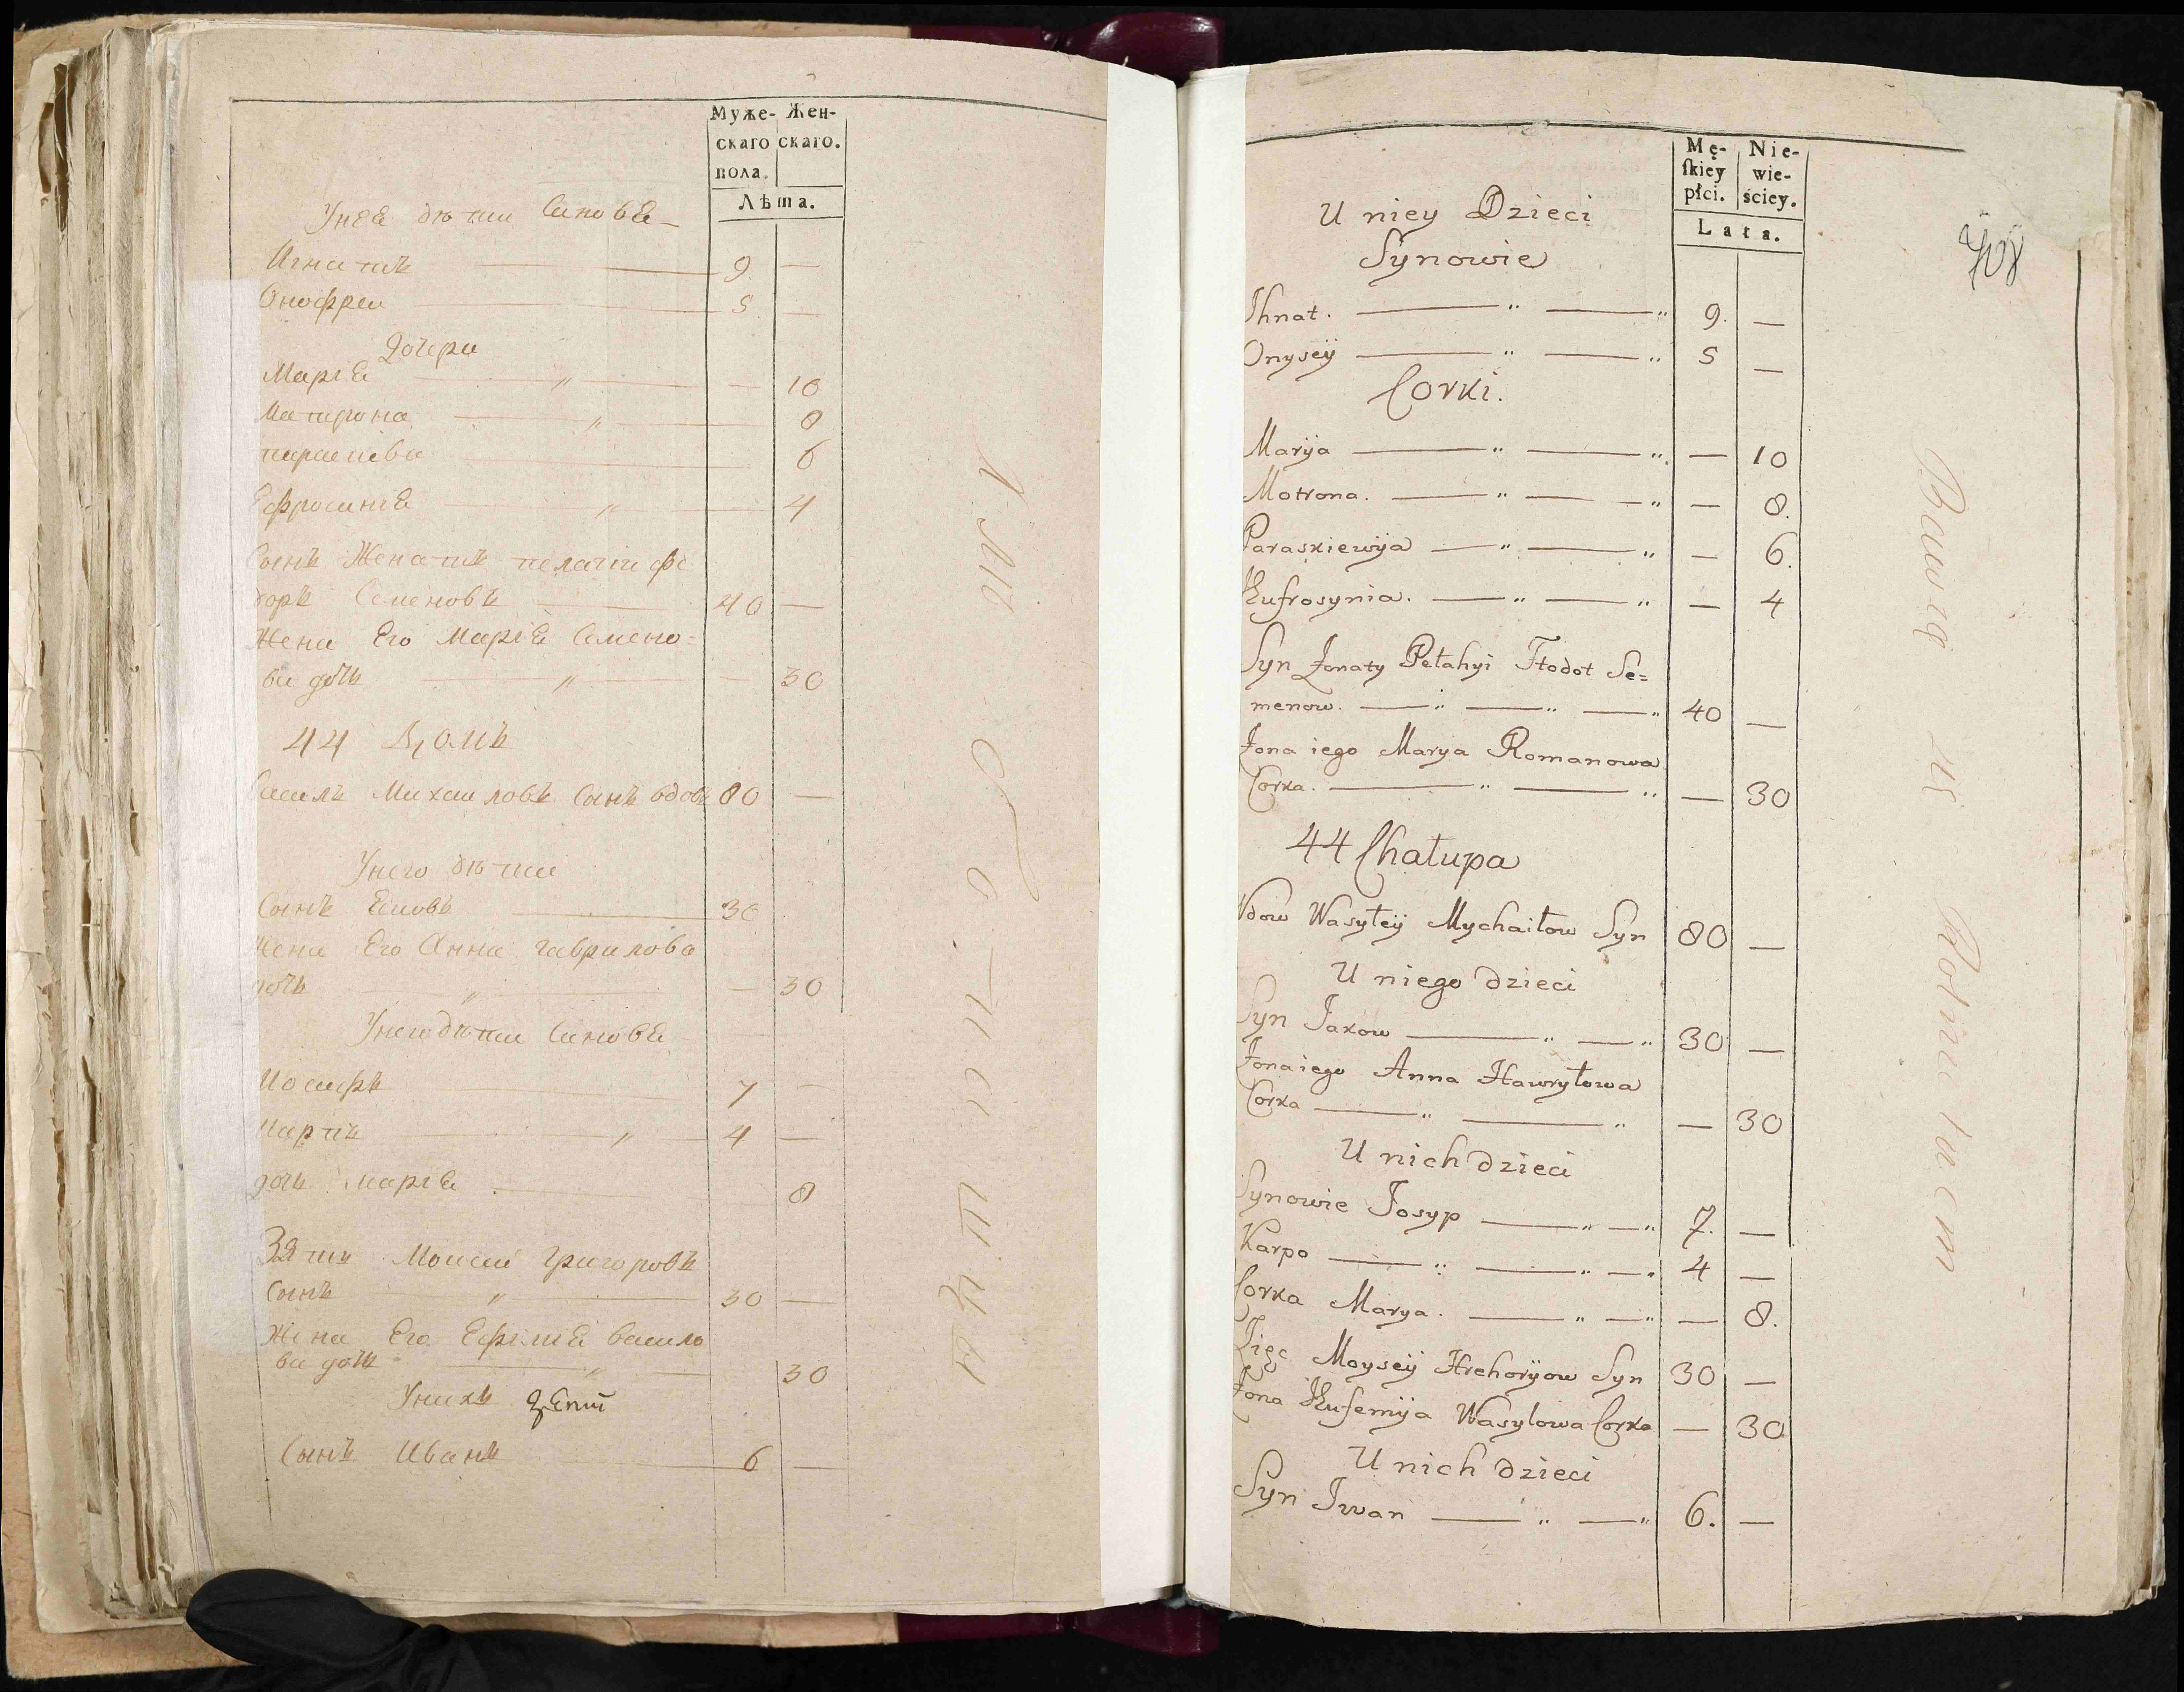 Муже- Жен-
скаго скаго.
пола.
Лѣта.
Унея дѣти Синовя
Игнатъ 9 —
Онофреи 5 —
Дочери
Марія 10
Матрона 8
параскева 6
Ефросинія 4
Сынъ Женатъ пелагіи фе
доръ Семеновъ 40 —
Жена Его Марія Семено-
ва дочь — 30
44 Домъ
Василь Михаиловъ Сынъ вдовъ 80 —
Унего дѣти
Сынъ Яковъ 30
Жена Его Анна гаврилова
дочь — 30
Унего дѣти Синовя
Иосифъ 7 —
Карпъ 4 —
дочь марія 8
Зять Моисей Григоровъ
Сынъ 30 —
Жена Его Ефимія васило
ва дочь 30
Унихъ дѣти
Сынъ Иванъ 6 —
Mę- Nie-
skiey wie-
płci. ściey.
Lata.
U niey Dzieci
Synowie
Ihnat. 9. —
Onyseÿ 5 —
Corki.
Marÿa — 10
Motrona. — 8.
Paraskiewÿa — 6.
Eufrosynia. — 4
Syn Żonaty Pełahyi Fłodot Se=
menow. 40 —
Żona iego Marya Romanowa
Corka. — 30
44 Chałupa
Wdow Wasyłeÿ Mychaiłow Syn 80 —
U niego dzieci
Syn Jakow 30 —
Żona iego Anna Hawryłowa
Corka — 30
U nich dzieci
Synowie Josyp 7. —
Karpo 4 —
Corka Marya. — 8.
Zięc Moyseÿ Hrehorÿow Syn 30 —
Żona Eufemÿa Wasylowa Corka — 30
U nich dzieci
Syn Iwan 6. —